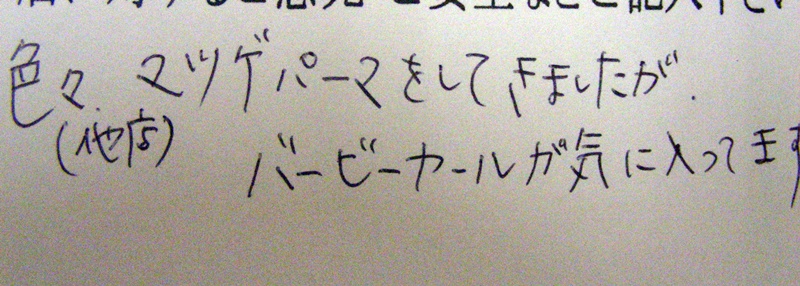 色々、マツゲパーマをしてきましたが、
(他店)
バービーカールが気に入ってます